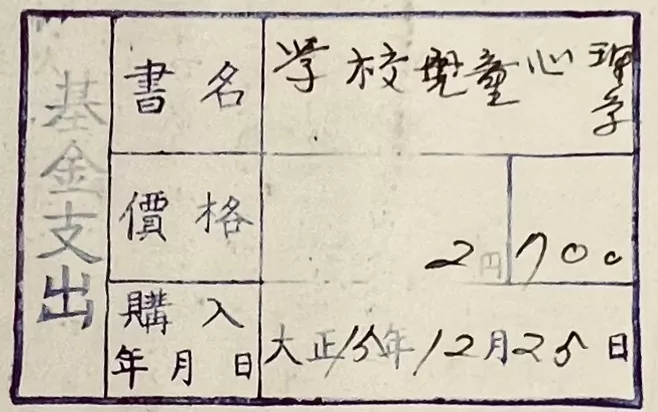 基金支出
書名 学校児童心理学
價格 2円700
購入年月日 大正15年12月25日